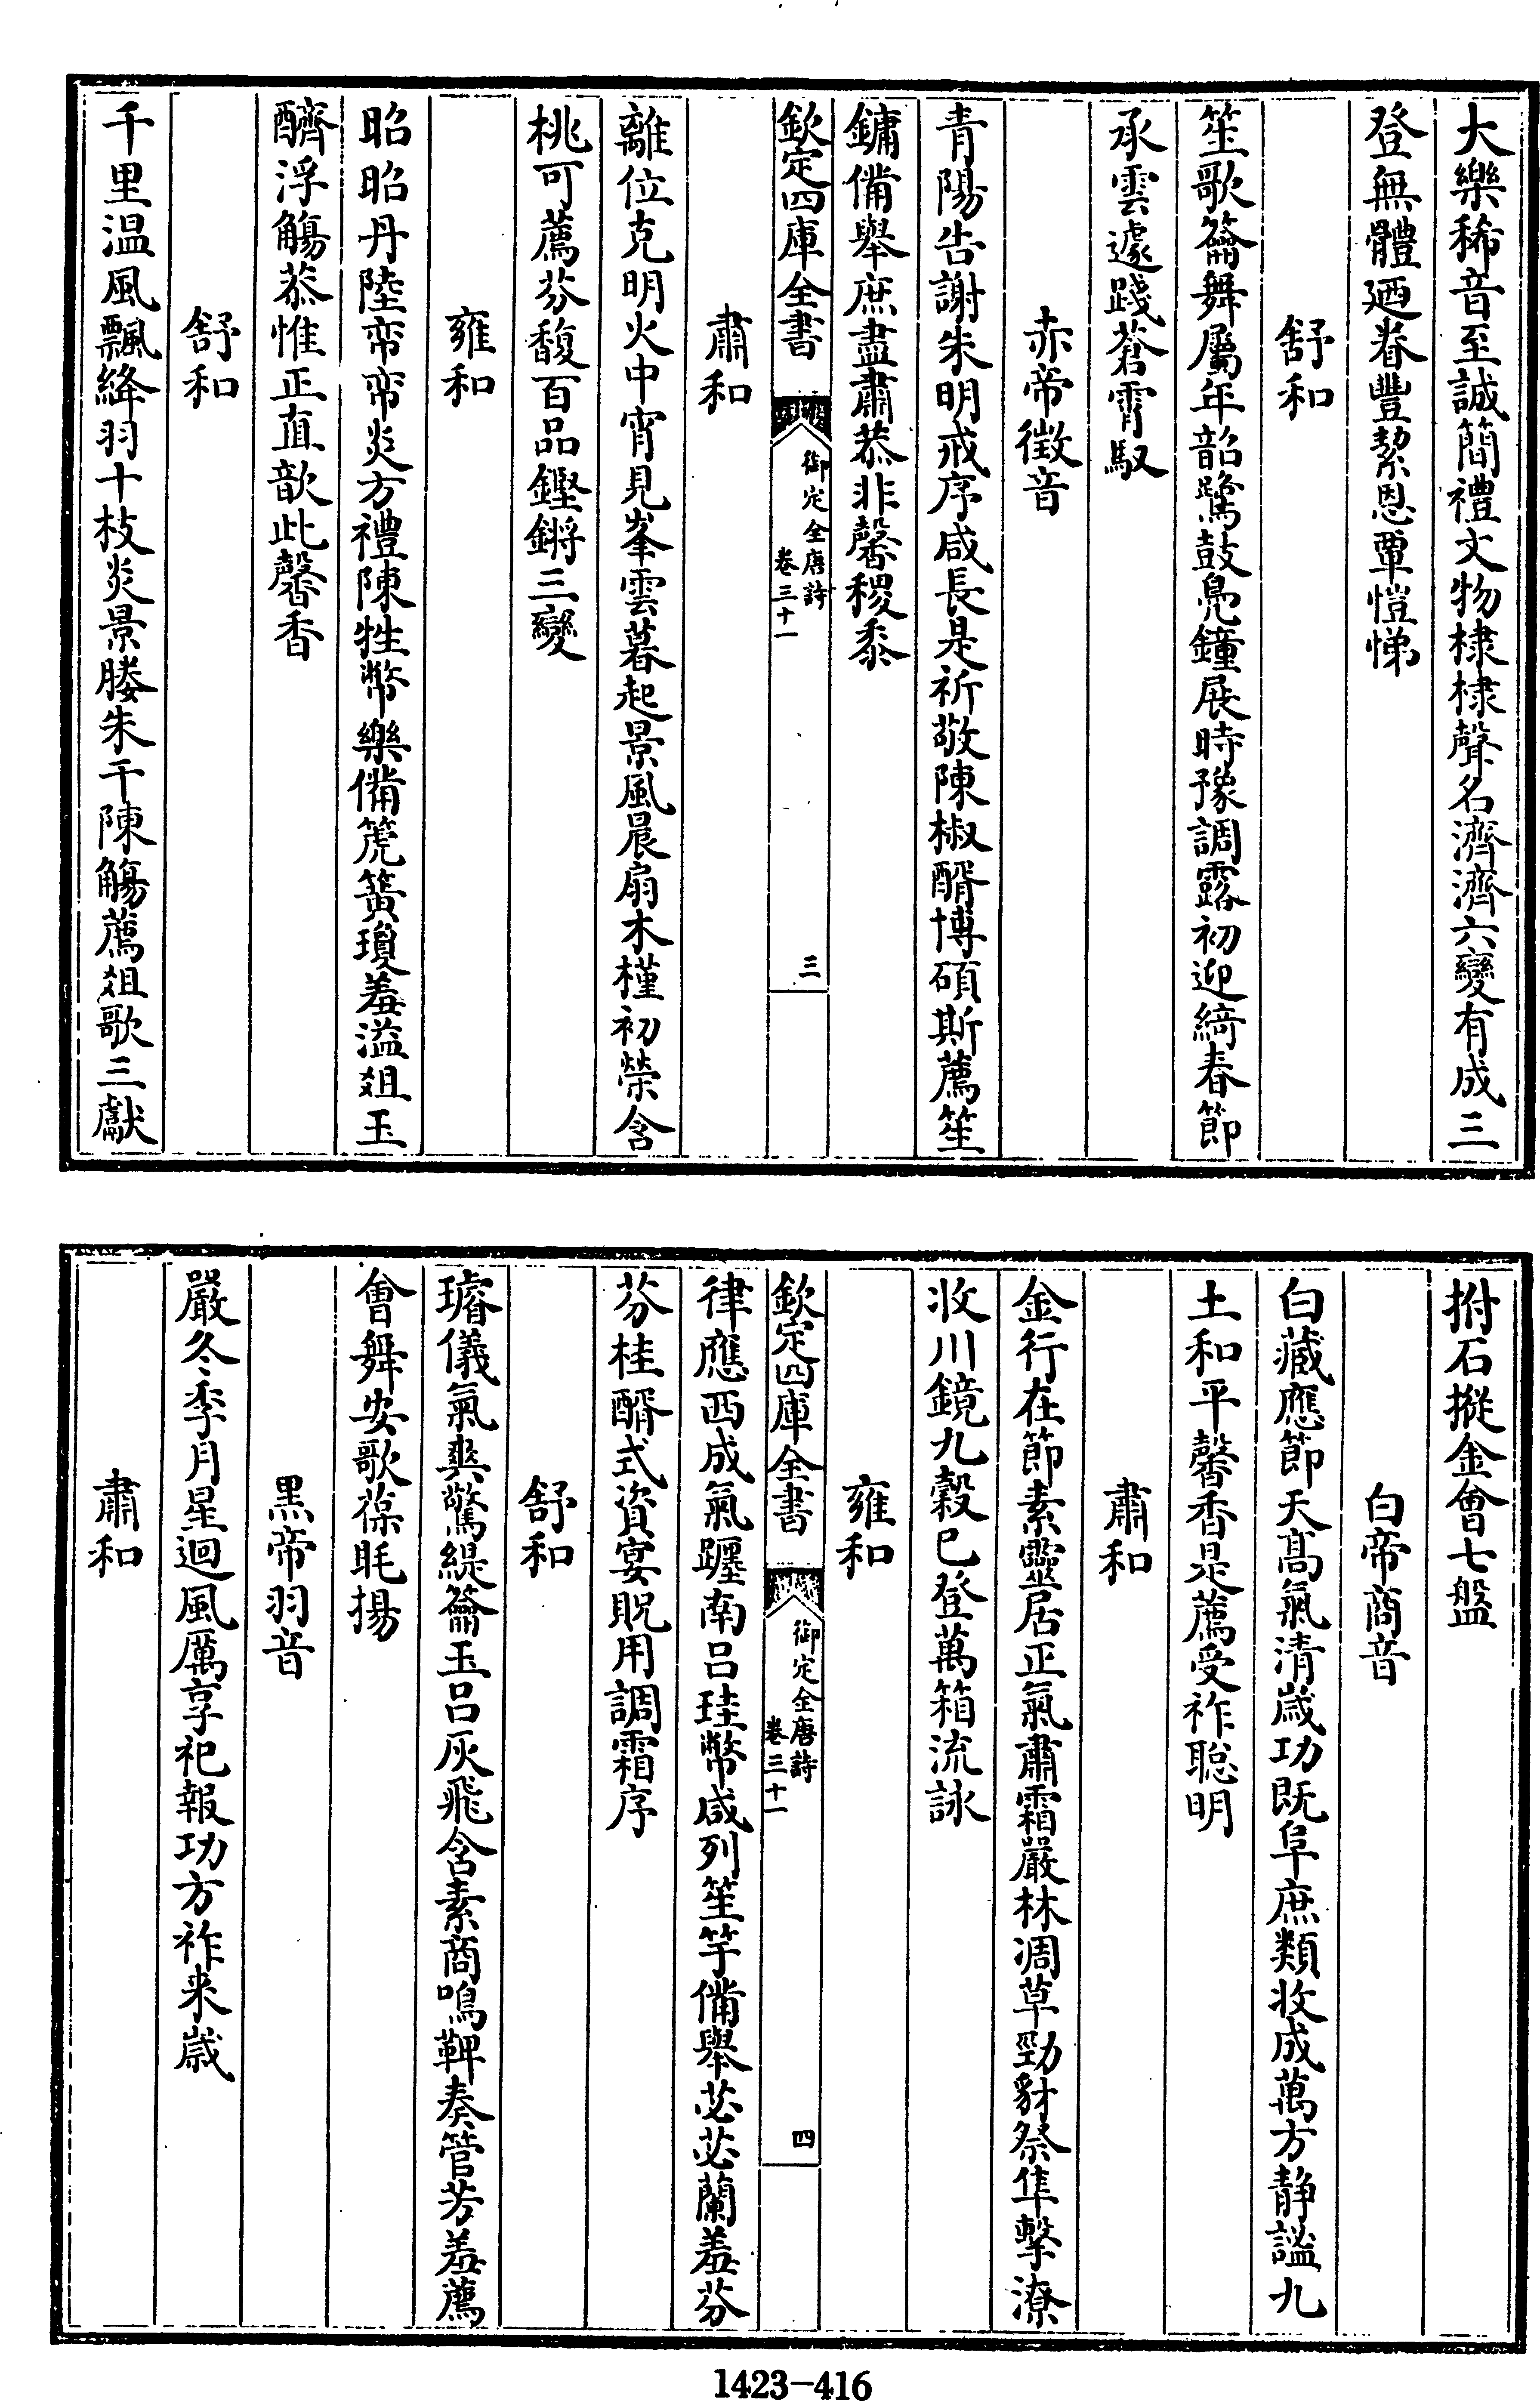 大樂稀音至誠簡禮文物棣棣聲名濟濟六變有成三
登無體廼眷豐絜恩覃愷悌
舒和
笙歌籥舞屬年韶鷺鼓鳧鐘展時豫調露初迎綺春節
承雲遽踐蒼霄馭
赤帝徴音
青陽告謝朱明戒序咸長是祈敬陳椒醑博碩斯薦笙
鏞備舉庶盡肅恭非馨稷黍
欽定四庫全書
御定全唐詩
卷三十一
三
肅和
離位克明火中宵見峯雲暮起景風晨扇木槿初榮含
桃可薦芬馥百品鏗鏘三變
雍和
昭昭丹陸帟帟炎方禮陳牲幣樂備箎簧瓊羞溢俎玉
醑浮觴恭惟正直歆此馨香
舒和
千里温風飄絳羽十枝炎景媵朱干陳觴薦俎歌三獻
拊石摐金會七盤
白帝商音
白藏應節天髙氣清歳功既阜庶類收成萬方静謐九
土和平馨香是薦受祚聰明
肅和
金行在節素靈居正氣肅霜嚴林凋草勁豺祭隼擊潦
收川鏡九穀已登萬箱流詠
欽定四庫全書
御定全唐詩
卷三十一
四
雍和
律應西成氣躔南呂珪幣咸列笙竽備舉苾苾蘭羞芬
芬桂醑式資宴貺用調霜序
舒和
璿儀氣爽驚緹籥玉呂灰飛含素商鳴鞞奏管芳羞薦
會舞安歌葆眊揚
黑帝羽音
嚴冬季月星迴風厲享祀報功方祚来歳
肅和
1423-416